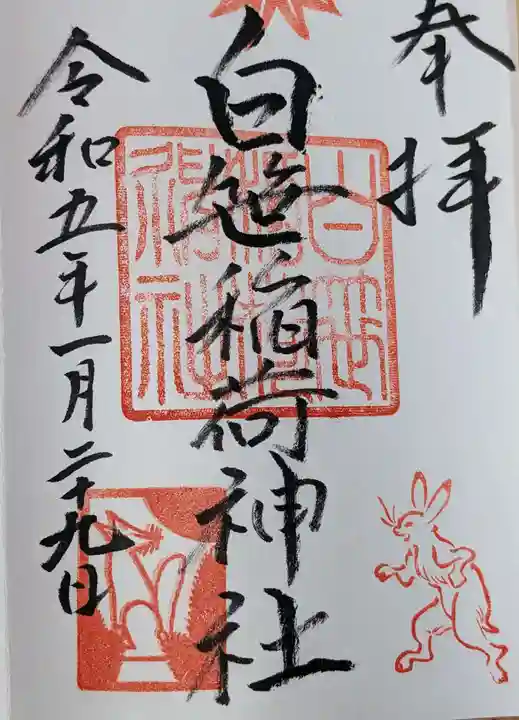 奉拝
白笹稲荷神社
令和五年一月二十九日
白笹稲荷神社